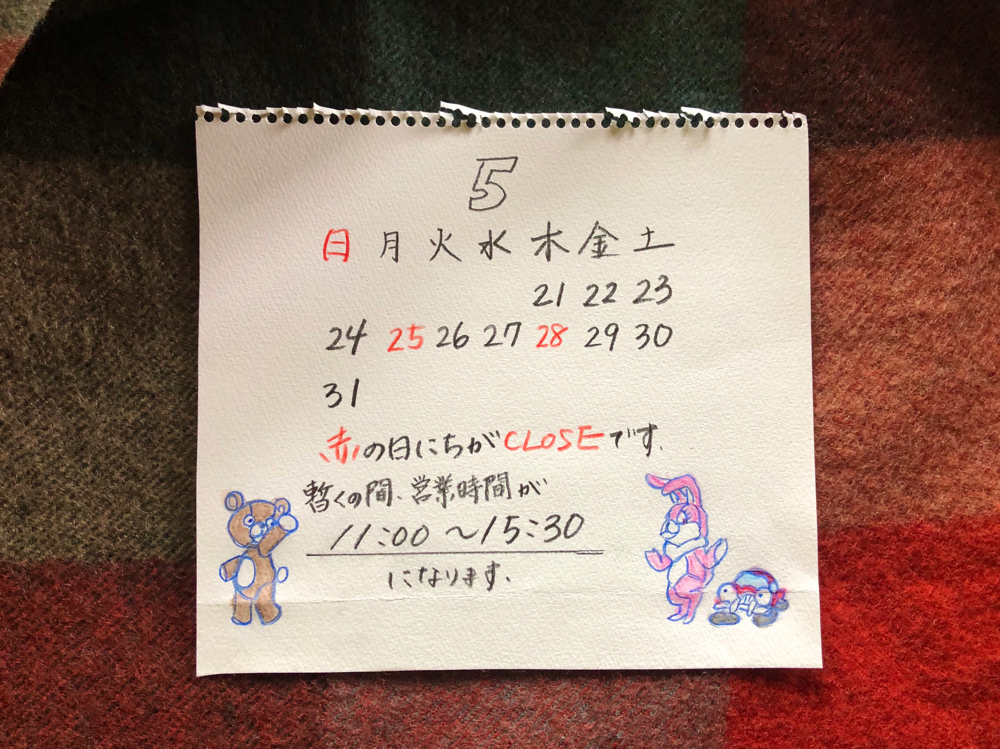 5
日 月 火 水 木 金 土
21 22 23
24 25 26 27 28 29 30
31
赤の日にちがCLOSEです.
暫くの間、営業時間が
11:00〜15:30
になります.